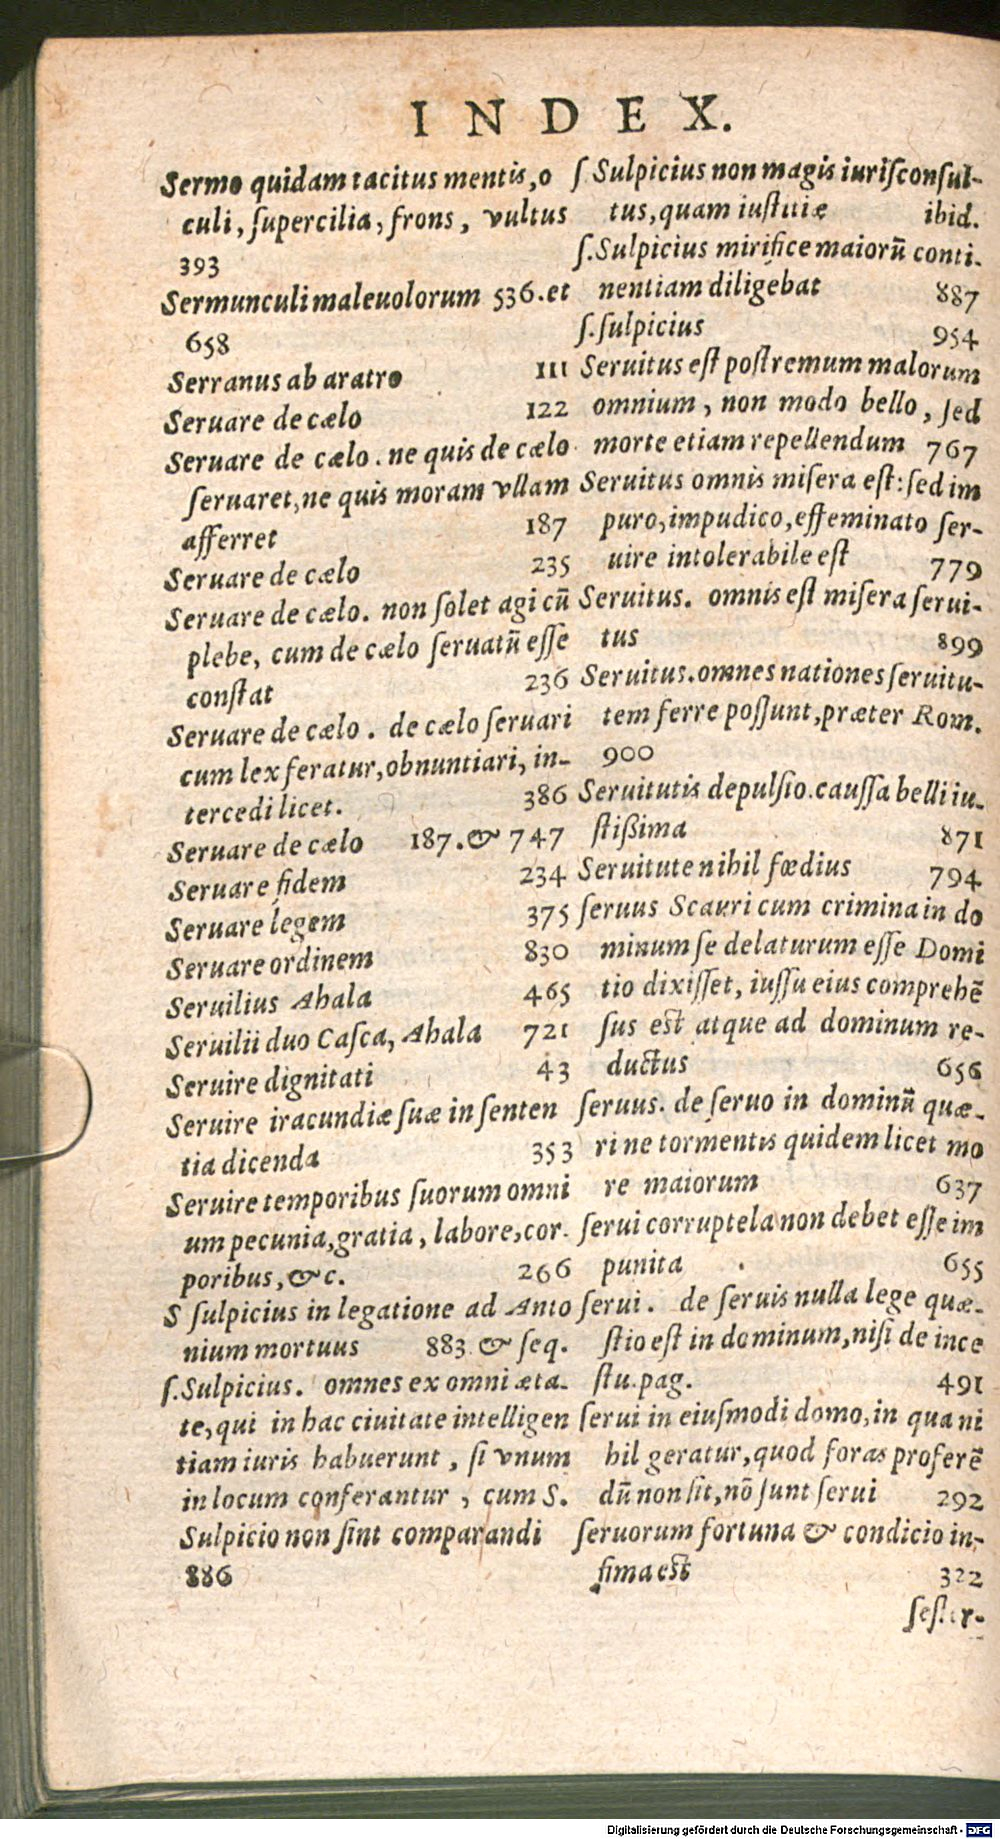 INDEX.
Sermo quidam tacitus mentis, o
culi, ſupercilia, frons, vultus
393
Sermunculi maleuolorum 536. et
658
Serranus ab aratro 111
Seruare de cælo 122
Seruare de cælo. ne quis de cælo
ſeruaret, ne quis moram vllam
afferret 187
Seruare de cælo 235
Seruare de cælo. non ſolet agi cū
plebe, cum de cælo ſeruatū eſſe
conſtat 236
Seruare de cælo. de cælo ſeruari
cum lex feratur, obnuntiari, in-
tercedi licet. 386
Seruare de cælo 187. & 747
Seruare fidem 234
Seruare legem 375
Seruare ordinem 830
Seruilius Ahala 465
Seruilii duo Caſca, Ahala 721
Seruire dignitati 43
Seruire iracundiæ ſuæ in ſenten
tia dicenda 353
Seruire temporibus ſuorum omni
um pecunia, gratia, labore, cor-
poribus, &c. 266
S ſulpicius in legatione ad Anto
nium mortuus 883. & ſeq.
ſ. Sulpicius. omnes ex omni æta-
te, qui in hac ciuitate intelligen
tiam iuris habuerunt, ſi vnum
in locum conferantur, cum S.
Sulpicio non ſint comparandi
886
ſ. Sulpicius non magis iuriſconſul-
tus, quam iuſtitiæ ibid.
ſ. Sulpicius mirifice maiorū conti-
nentiam diligebat 887
ſ. ſulpicius 954
Seruitus eſt poſtremum malorum
omnium, non modo bello, ſed
morte etiam repellendum 767
Seruitus omnis miſera eſt: ſed im
puro, impudico, effeminato ſer-
uire intolerabile eſt 779
Seruitus. omnis eſt miſera ſerui-
tus 899
Seruitus. omnes nationes ſeruitu-
tem ferre poſſunt, præter Rom.
900
Seruitutis depulſio. cauſſa belli iu-
ſtißima 871
Seruitute nihil fœdius 794
ſeruus Scauri cum crimina in do
minum ſe delaturum eſſe Domi
tio dixiſſet, iuſſu eius comprehē
ſus est atque ad dominum re-
ductus 656
ſeruus. de ſeruo in dominū quæ-
ri ne tormentis quidem licet mo
re maiorum 637
ſerui corruptela non debet eſſe im
punita 655
ſerui. de ſeruis nulla lege quæ-
ſtio eſt in dominum, niſi de ince
ſtu. pag. 491
ſerui in eiuſmodi domo, in qua ni
hil geratur, quod foras proferē
dū non ſit, nō ſunt ſerui 292
ſeruorum fortuna & condicio in-
fima est 322
ſeſter-
Digitalisierung gefördert durch die Deutsche Forschungsgemeinschaft - DFG